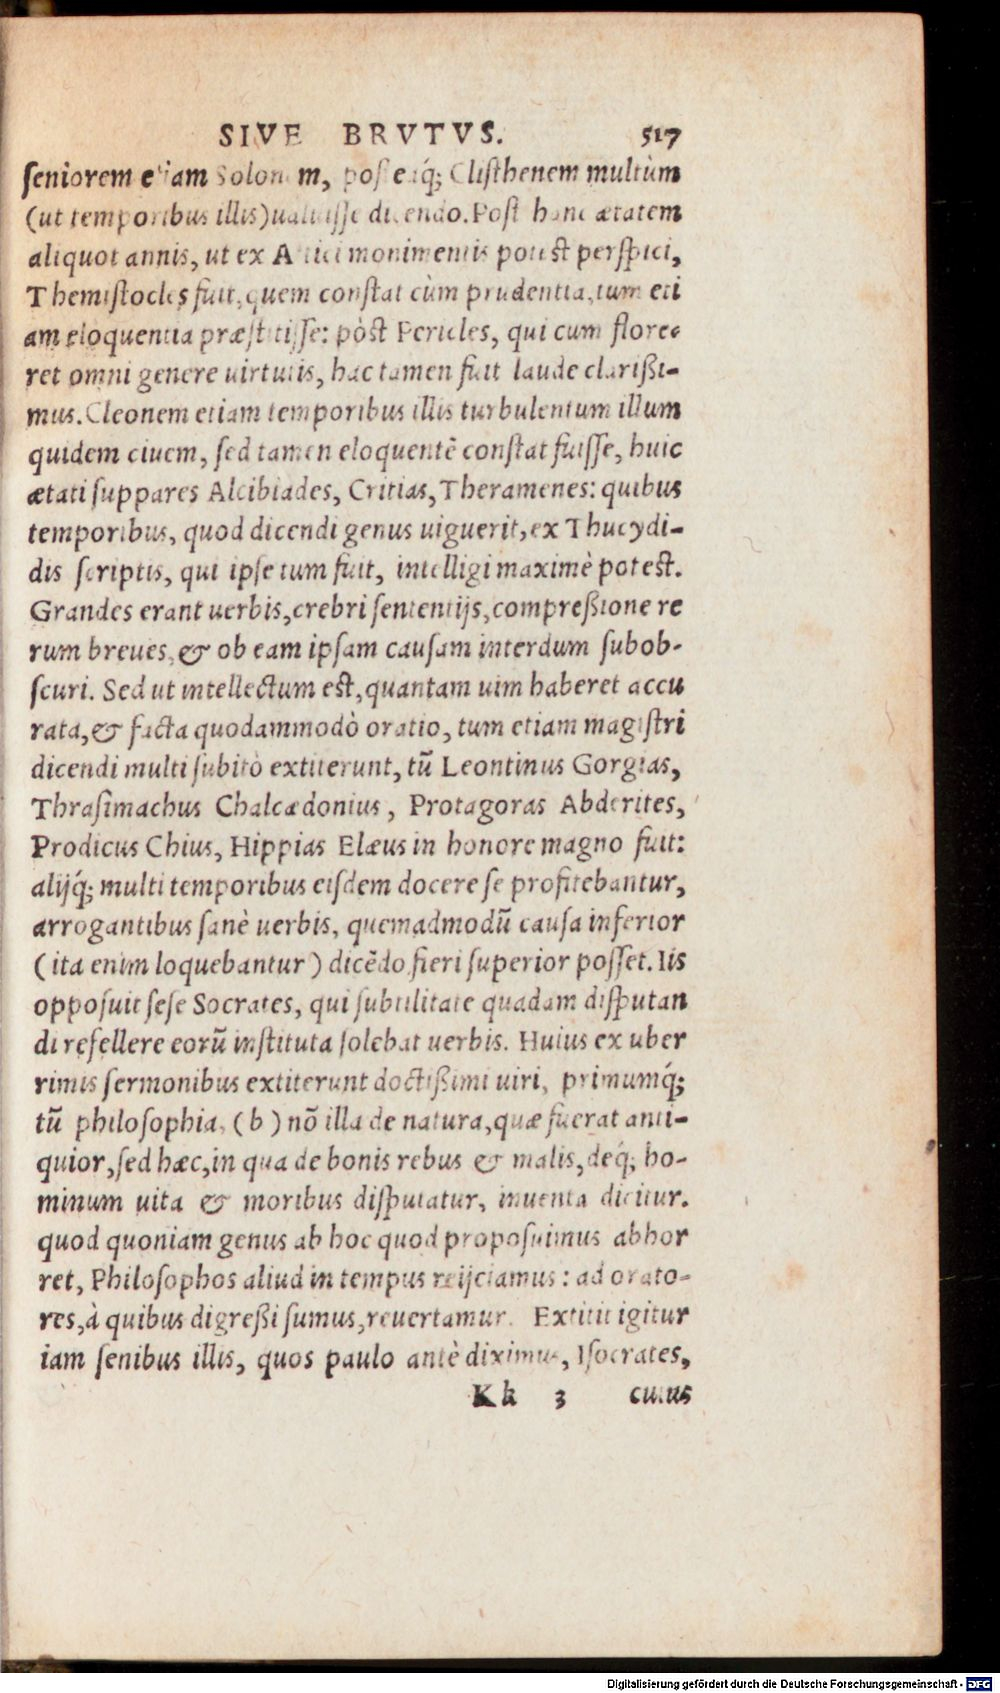 SIVE BRVTVS. 517
seniorem etiam Solonem, posteaq́; Clisthenem multùm
(ut temporibus illis) ualuisse dicendo. Post hanc ætatem
aliquot annis, ut ex Attici monimentis potest perspici,
Themistocles fuit, quem constat cùm prudentia, tum eti
am eloquentia præstitisse: pòst Pericles, qui cum flore-
ret omni genere uirtutis, hac tamen fuit laude clarißi-
mus. Cleonem etiam temporibus illis turbulentum illum
quidem ciuem, sed tamen eloquentẽ constat fuisse, huic
ætati suppares Alcibiades, Critias, Theramenes: quibus
temporibus, quod dicendi genus uiguerit, ex Thucydi-
dis scriptis, qui ipse tum fuit, intelligi maximè potest.
Grandes erant uerbis, crebri sententijs, compreßione re
rum breues, & ob eam ipsam causam interdum subob-
scuri. Sed ut intellectum est, quantam uim haberet accu
rata, & facta quodammodò oratio, tum etiam magistri
dicendi multi subitò extiterunt, tũ Leontinus Gorgias,
Thrasimachus Chalcædonius, Protagoras Abderites,
Prodicus Chius, Hippias Elæus in honore magno fuit:
alijq́; multi temporibus eisdem docere se profitebantur,
arrogantibus sanè uerbis, quemadmodũ causa inferior
(ita enim loquebantur) dicẽdo fieri superior posset. Iis
opposuit sese Socrates, qui subtilitate quadam disputan
di refellere eorũ instituta solebat uerbis. Huius ex uber
rimis sermonibus extiterunt doctißimi uiri, primumq́;
tũ philosophia, (b) nõ illa de natura, quæ fuerat anti-
quior, sed hæc, in qua de bonis rebus & malis, deq́; ho-
minum uita & moribus disputatur, inuenta dicitur.
quod quoniam genus ab hoc quod proposuimus abhor
ret, Philosophos aliud in tempus reijciamus: ad orato-
res, à quibus digreßi sumus, reuertamur. Extitit igitur
iam senibus illis, quos paulo antè diximus, Isocrates,
Kk 3 cuius
Digitalisierung gefördert durch die Deutsche Forschungsgemeinschaft - DFG